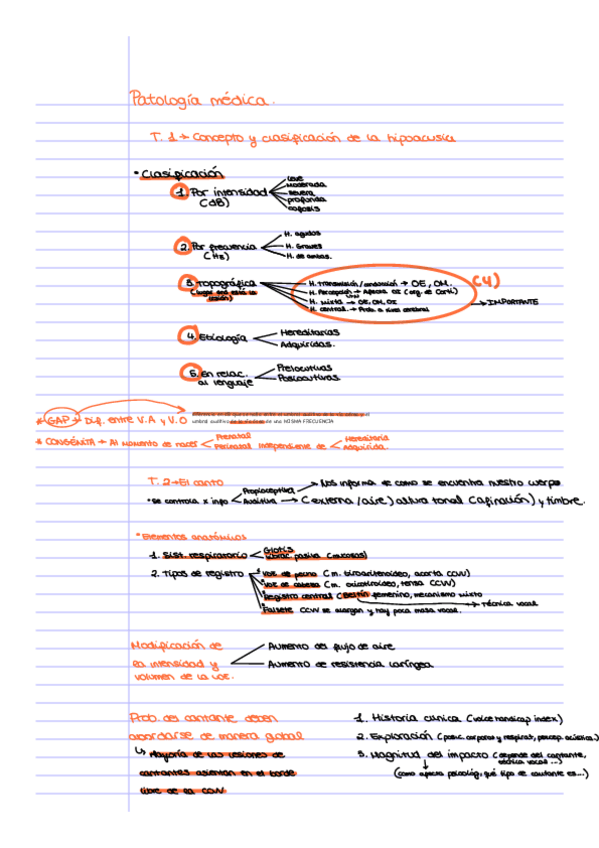 Patología médica.
T. 1 → Concepto y clasificación de la hipoacusia
• Clasificación
1. Por intensidad (dB)
Leve
Moderada
Severa
profunda
cofosis
2. Por frecuencia (Hz)
H. agudos
H. Graves
H. de ambas.
3. Topográfica (lugar en el que está la lesión)
H. Transmisión / conducción → OE, OM.
H. Percepción → Afecta OI (org. de Corti)
H. mixta → OE, OM, OI
H. central → Prob. a nivel cerebral
(4)
→ IMPORTANTE
4. Etiología
Hereditarias
Adquiridas.
5. En relac. al lenguaje
Prelocutivas
Poslocutivas
* GAP → Dif. entre V.A y V.O
umbral auditivo de una MISMA FRECUENCIA
* CONGÉNITA → Al momento de nacer
Prenatal
Perinatal independiente de
Hereditaria
Adquirida.
T. 2 → El canto
• se controla x info
Propioceptiva → Nos informa de como se encuentra nuestro cuerpo
Auditiva → (externa / aire) altura tonal (afinación) y timbre.
• Elementos anatómicos
1. Sist. respiratorio
Glotis
vibrac. pasiva (mucosas)
2. Tipos de registro
Voz de pecho (m. tiroaritenoideo, acorta CCVV)
Voz de cabeza (m. cricotiroideo, tensa CCVV)
Registro central (Beltin femenino, mecanismo mixto
→ Técnica vocal
Falsete CCVV se alargan y hay poca masa vocal.
Modificación de
la intensidad y
volumen de la voz.
Aumento del flujo de aire
Aumento de resistencia laríngea
Prob. del cantante deben
abordarse de manera global
↳ Mayoría de las lesiones de
cantantes asientan en el borde
libre de la CCVV
1. Historia clínica (voice handicap index)
2. Exploración (posic. corporal y respirat, percep. acústica)
3. Magnitud del impacto (depende del cantante,
técnica vocal...)
(como afecta psicológ, qué tipo de cantante es...)